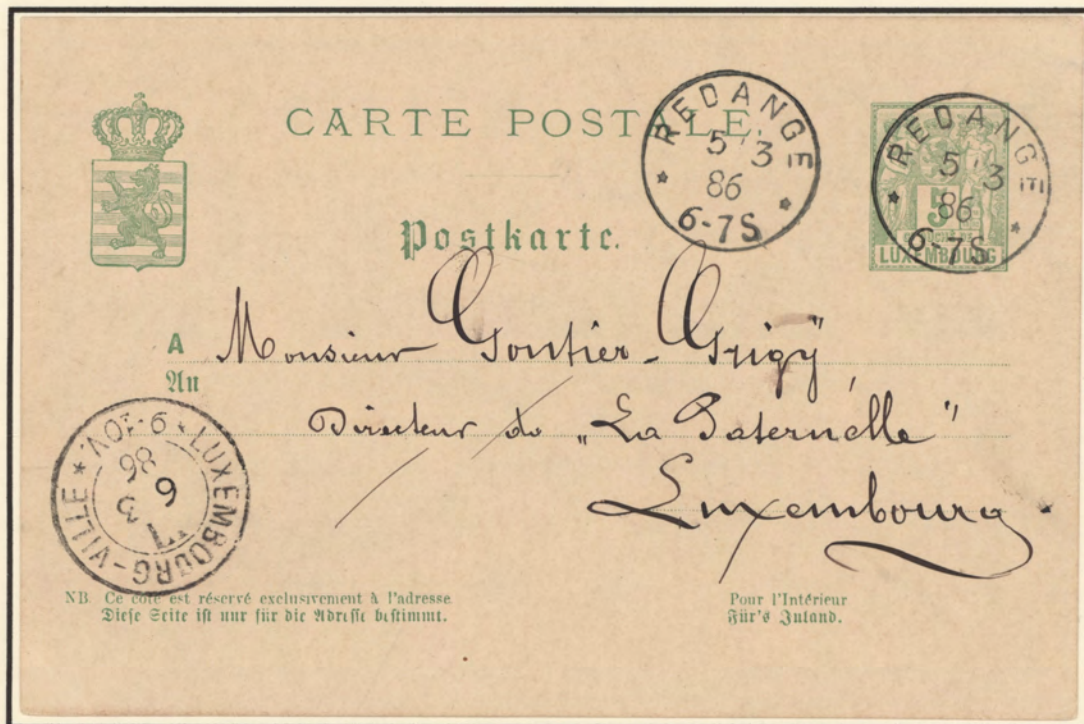 CARTE POSTALE.
REDANGE
5 3
86
6-7S
REDANGE
5 3
86
6-7S
5
LUXEMBOURG
Postkarte.
A Monsieur Gontier-Grigÿ
An
Directeur de „La Paternelle"
Luxembourg
LUXEMBOURG-VILLE * 9-10V. *
6 3
86
NB. Ce côté est réservé exclusivement à l'adresse
Diese Seite ist nur für die Adresse bestimmt.
Pour l'Intérieur
Für's Inland.